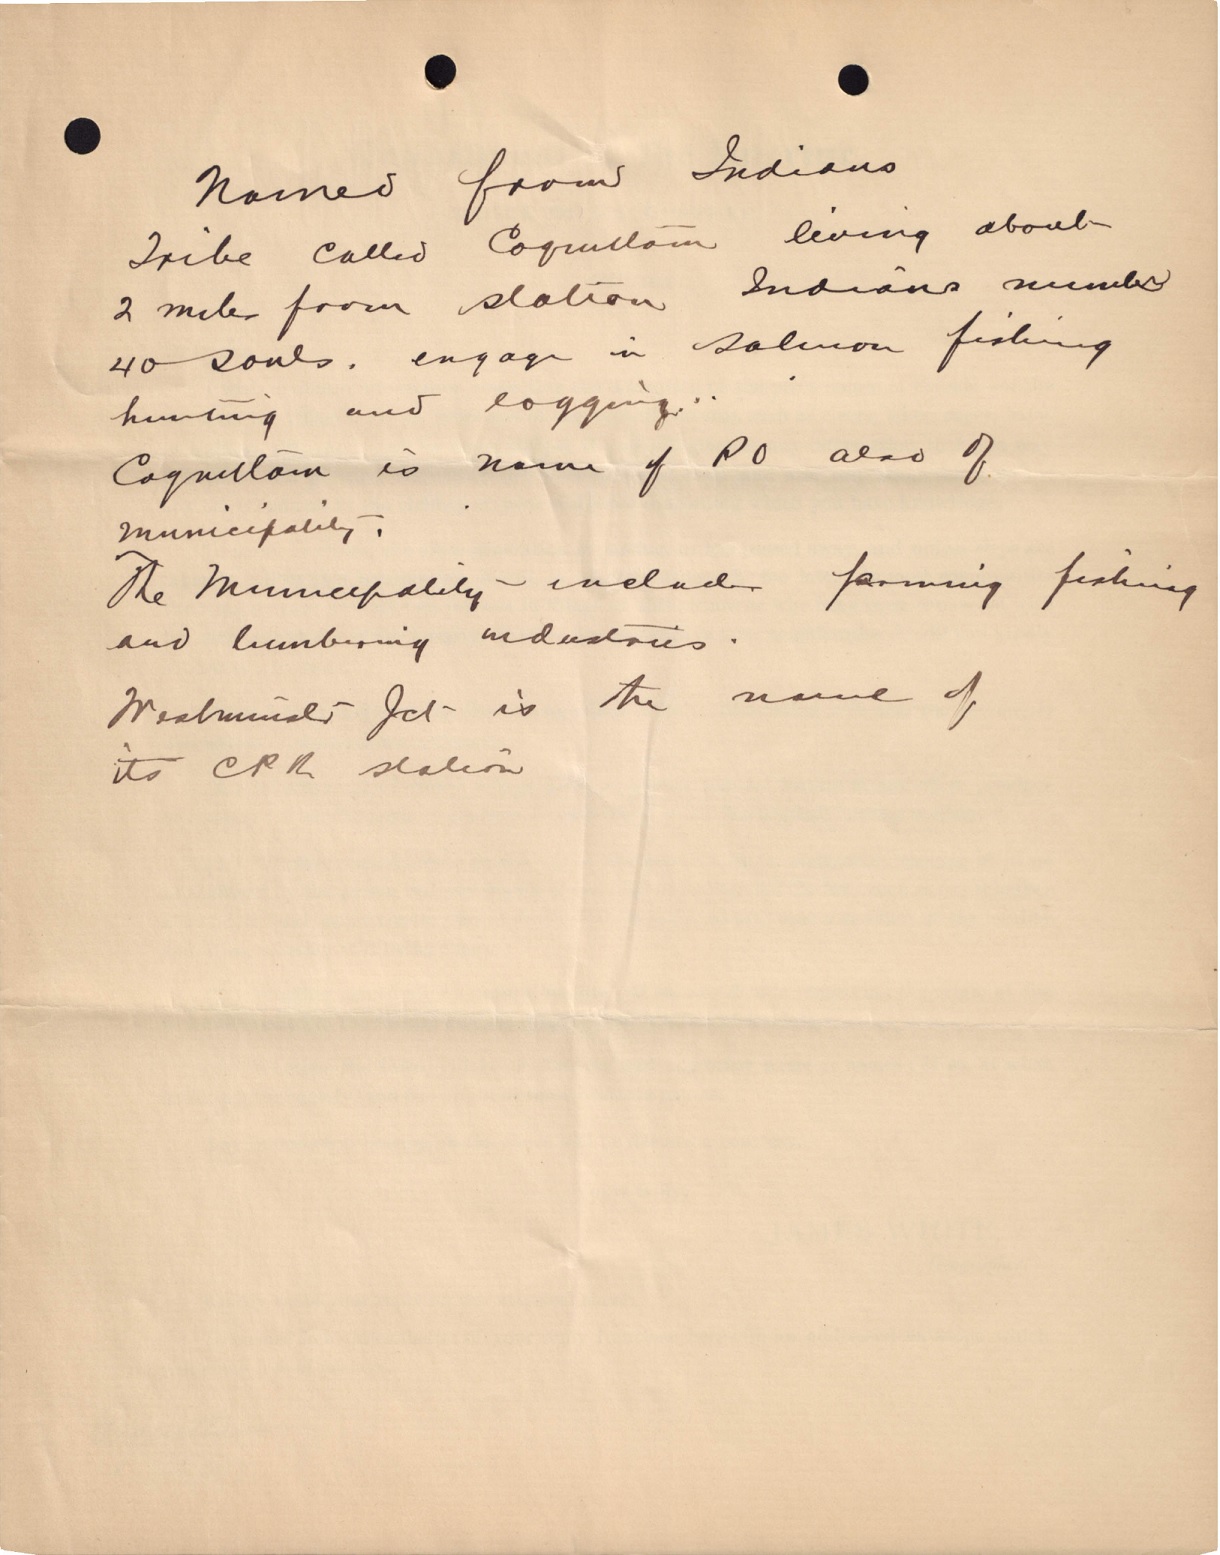 Named from Indians
Tribe called Coquitlam living about
2 miles from station Indians number
40 souls. engage in salmon fishing
hunting and logging.
Coquitlam is name of PO also of
municipality.
The Municipality includes farming fishing
and lumbering industries.
Westminster Jct is the name of
its CPR station